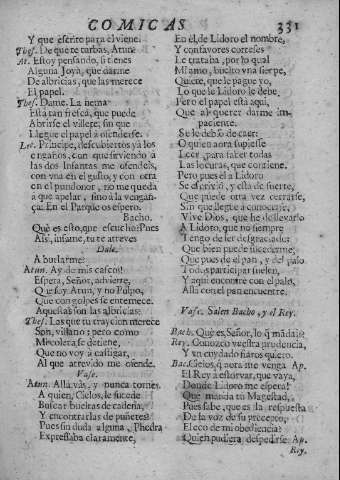 COMICAS
331
Y que escrito para el viene.
Thes. De que te turbas, Atun?
At. Estoy pensando, si tienes
Alguna Joya, que darme
De albricias, que las merece
El papel.
Thes. Dame. La nema
Esta tan fresca, que puede
Abrirse el villete, sin que
Llegue el papel à ofenderse.
Lee. Principe, descubiertos yà los
engaños, con que sirviendo à
las dos Infantas me ofendeis,
con vna en el gusto, y con otra
en el pundonor, no me queda
à que apelar, sino à la vengan-
ça: En el Parque os espero.
Bacho.
Què es esto, que escucho? Pues
Assi, infame, tu te atreves
Dale.
A burlarme?
Atun. Ay de mis cascos!
Espera, Señor, advierte,
Que soy Atun, y no Pulpo,
Que con golpes se enternece.
Aquestas son las albricias:
Thes. Las que tu traycion merece
Son, villano; pero como
Mi colera se detiene,
Que no voy à castigar,
Al que atrevido me ofende.
Vase.
Atun. Allà vàs, y nunca tornes
A quien, Cielos, le sucede
Buscar bueltas de cadena,
Y encontrarlas de puñetes?
Pues sin duda alguna, Phedra
Expressaba claramente,
En èl, de Lidoro el nombre,
Y con favores corteses
Le trataba, por lo qual
Mi amo, buelto vna sierpe,
Quiere, que le pague yo,
Lo que le Lidoro le debe,
Pero el papel està aqui,
Que al querer darme im-
paciente.
Se le debiò de caer:
O quien aora supiesse
Leer, para saber todas
Las locuras, que contiene.
Pero pues el à Lidoro
Se escriviò, y esta de suerte,
Que puede otra vez cerrarse,
Sin que llegue à conocerse,
Vive Dios, que he de llevarlo
A Lidoro, que no siempre
Tengo de ser desgraciado:
Que bien puede sucederme,
Que pues de el pan, y del palo
Todos participar suelen,
Y aqui encontre con el palo,
Allà con el pan encuentre.
Vase. Salen Bacho, y el Rey.
Bach. Què es, Señor, lo q̃ mãdais?
Rey. Conozco vuestra prudencia,
Y vn cuydado fiaros quiero.
Bac. Cielos, q̃ aora me venga Ap.
El Rey à estorvar, que vaya,
Donde Lidoro me espera!
Què manda tu Magestad,
Pues sabe, que es la respuesta
De la voz de su precepto,
El eco de mi obediencia?
Quien pudiera despedirse. Ap.
Rey.